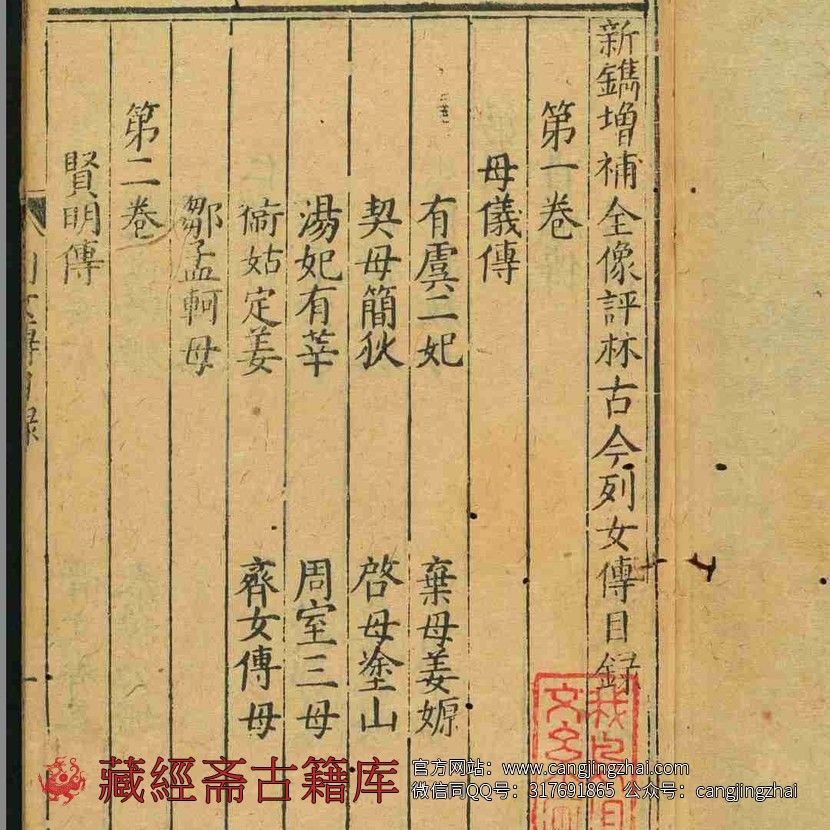 新鐫增補全像評林古今列女傳目録
第一卷
母儀傳
有虞二妃 棄母姜嫄
契母簡狄 啓母塗山
湯妃有莘 周室三母
衞姑定姜 齊女傳母
鄒孟軻母
第二卷
賢明傳
藏經斋古籍库
官方网站：www.cangjingzhai.com
微信同QQ号：317691865 公众号：cangjingzhai